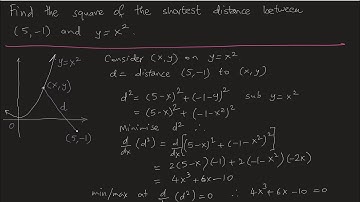 Find the square of the shortest distance between
(5,-1) and y=x².
y=x²
(x,y)
d
0
(5,-1)
Consider (x,y) on y=x²
d = distance (5,-1) to (x,y)
d² = (5-x)² + (-1-y)² sub y=x²
= (5-x)² + (-1-x²)²
Minimise d² ∴
d/dx (d²) = d/dx [(5-x)² + (-1-x²)²]
= 2(5-x)(-1) + 2(-1-x²)(-2x)
= 4x³ + 6x - 10
min/max at d/dx (d²) = 0 ∴ 4x³ + 6x - 10 = 0